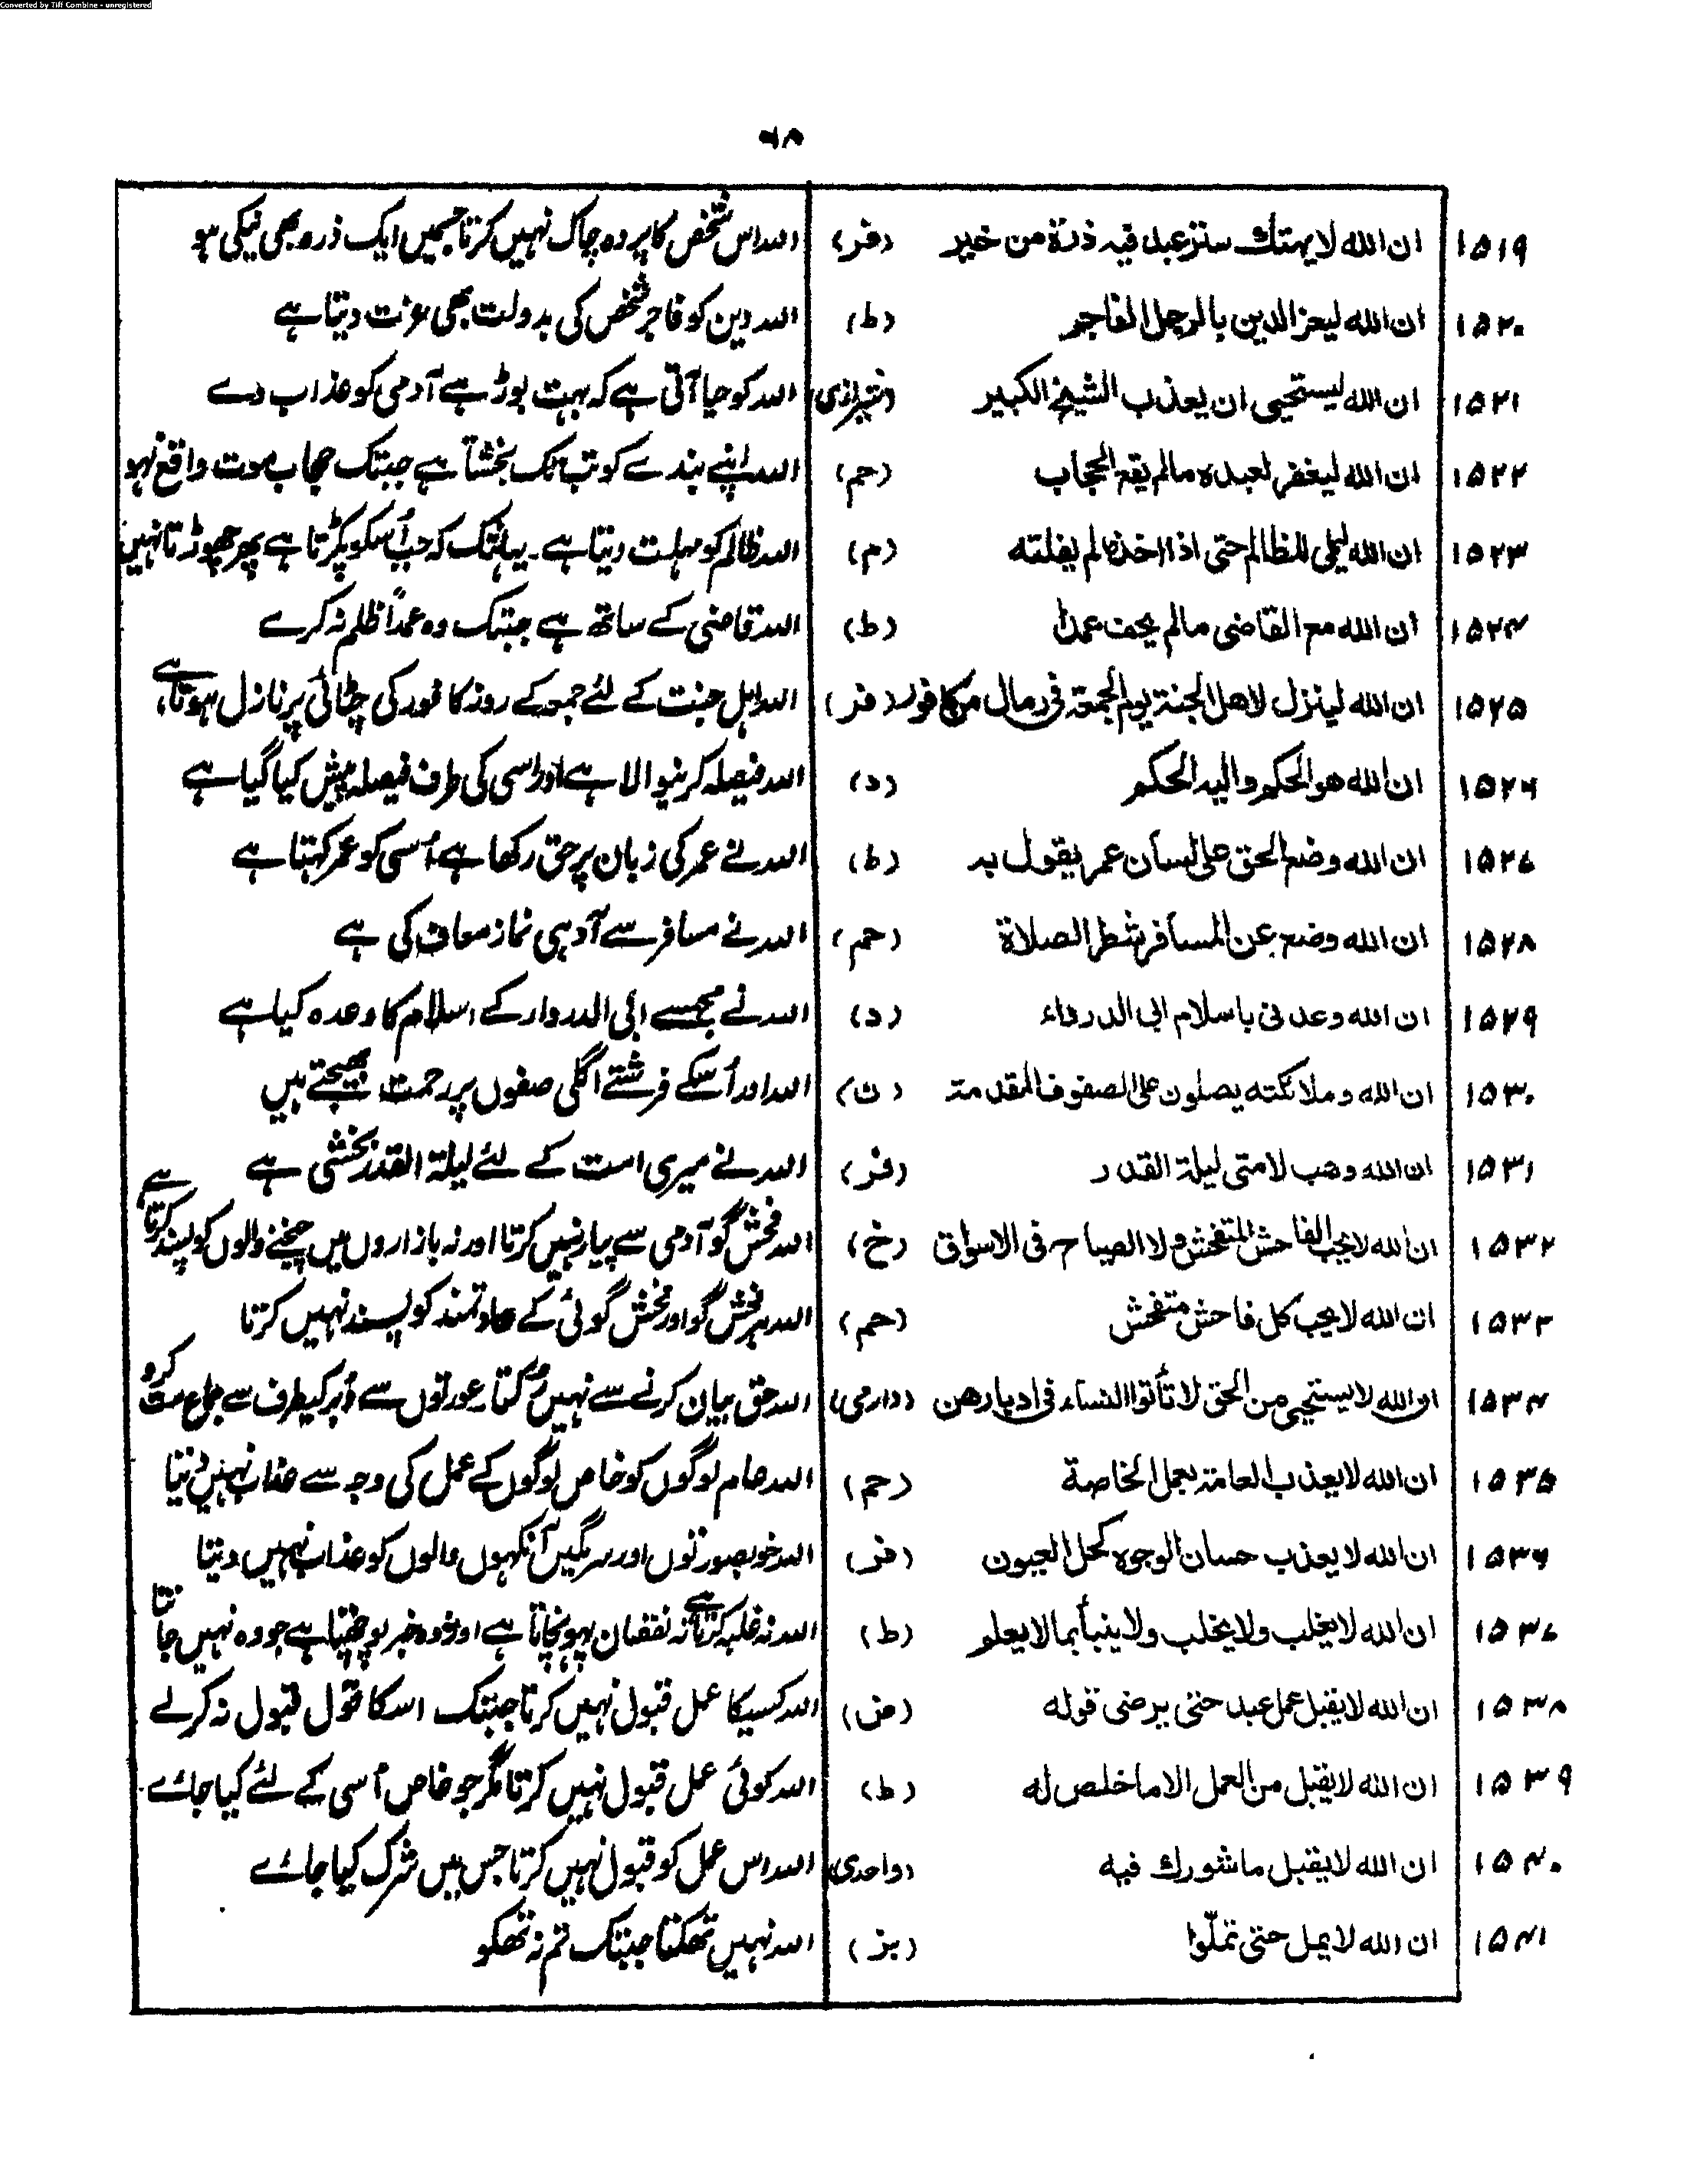 Converted by Tiff Combine - unregistered
۶۸
۱۵۱۹ ان الله لا یهتك ستر عبد فیه ذرة من خیر (فر) اللہ اس شخص کا پردہ چاک نہیں کرتا جسمیں ایک ذرہ بھی نیکی ہو
۱۵۲۰ ان الله لیعز الدین بالرجل الفاجر (ط) اللہ دین کو فاجر شخص کی بدولت بھی عزت دیتا ہے
۱۵۲۱ ان الله لیستحیی ان یعذب الشیخ الکبیر (شیرازی) اللہ کو حیا آتی ہے کہ بہت بوڑہے آدمی کو عذاب دے
۱۵۲۲ ان الله لیغفر لعبده مالم یقع الحجاب (حم) اللہ اپنے بندے کو تب تک بخشتا ہے جبتک حجاب موت واقع نہو
۱۵۲۳ ان الله لیملی للظالم حتی اذا اخذه لم یفلته (م) اللہ ظالم کو مہلت دیتا ہے۔ یہانتک کہ جب اُسکو پکڑتا ہے پھر چھوڑتا نہیں
۱۵۲۴ ان الله مع القاضی مالم یحف عمدا (ط) اللہ قاضی کے ساتھ ہے جبتک وہ عمداً ظلم نہ کرے
۱۵۲۵ ان الله لینزل لاهل الجنة یوم الجمعة فی رمال من کافور (فر) اللہ اہل جنت کے لئے جمعہ کے روز کافور کی چٹائی پر نازل ہوتا ہے
۱۵۲۶ ان الله هو الحکم والیه الحکم (د) اللہ فیصلہ کرنیوالا ہے اور اسی کی طرف فیصلہ پیش کیا گیا ہے
۱۵۲۷ ان الله وضع الحق علی لسان عمر یقول به (ط) اللہ نے عمر کی زبان پر حق رکھا ہے اُسی کو عمر کہتا ہے
۱۵۲۸ ان الله وضع عن المسافر شطر الصلاة (حم) اللہ نے مسافر سے آدہی نماز معاف کی ہے
۱۵۲۹ ان الله وعدنی باسلام ابی الدرداء (د) اللہ نے مجھسے ابی الدردار کے اسلام کا وعدہ کیا ہے
۱۵۳۰ ان الله و ملائکته یصلون علی الصفوف المقدمة (ن) اللہ اور اُسکے فرشتے اگلی صفوں پر رحمت بھیجتے ہیں
۱۵۳۱ ان الله وهب لامتی لیلة القدر (فر) اللہ نے میری امت کے لئے لیلۃ القدر بخشی ہے
۱۵۳۲ ان الله لا یحب الفاحش المتفحش ولا الصیاح فی الاسواق (خ) اللہ فحش گو آدمی سے پیار نہیں کرتا اور نہ بازاروں میں چیخنے والوں کو پسند کرتا ہے
۱۵۳۳ ان الله لا یحب کل فاحش متفحش (حم) اللہ ہر فحش گو اور فحش گوئی کے عادتمند کو پسند نہیں کرتا
۱۵۳۴ ان الله لا یستحیی من الحق لا تأتوا النساء فی ادبارهن (دارمی) اللہ حق بیان کرنے سے نہیں رُکتا عورتوں سے دُبر کیطرف سے جماع مت کرو
۱۵۳۵ ان الله لا یعذب العامة بعمل الخاصة (حم) اللہ عام لوگوں کو خاص لوگوں کے عمل کی وجہ سے عذاب نہیں دیتا
۱۵۳۶ ان الله لا یعذب حسان الوجوه کحل العیون (فر) اللہ خوبصورتوں اور سرمگیں آنکہوں والوں کو عذاب نہیں دیتا
۱۵۳۷ ان الله لا یغلب ولا یخلب ولا ینبأ بما لا یعلو (ط) اللہ نہ غلبہ کرتا ہے نہ نقصان پہونچاتا ہے اور نہ وہ خبر پوچھتا ہے جو وہ نہیں جانتا
۱۵۳۸ ان الله لا یقبل عمل عبد حتی یرضی قوله (ض) اللہ کسیکا عمل قبول نہیں کرتا جبتک اسکا قول قبول نہ کرلے
۱۵۳۹ ان الله لا یقبل من العمل الا ما خلص له (ط) اللہ کوئی عمل قبول نہیں کرتا مگر جو خاص اُسی کے لئے کیا جائے
۱۵۴۰ ان الله لا یقبل ما شورك فیه (واحدی) اللہ اس عمل کو قبول نہیں کرتا جس میں شرک کیا جائے
۱۵۴۱ ان الله لا یمل حتی تملّوا (بز) اللہ نہیں تھکتا جبتک تم نہ تھکو